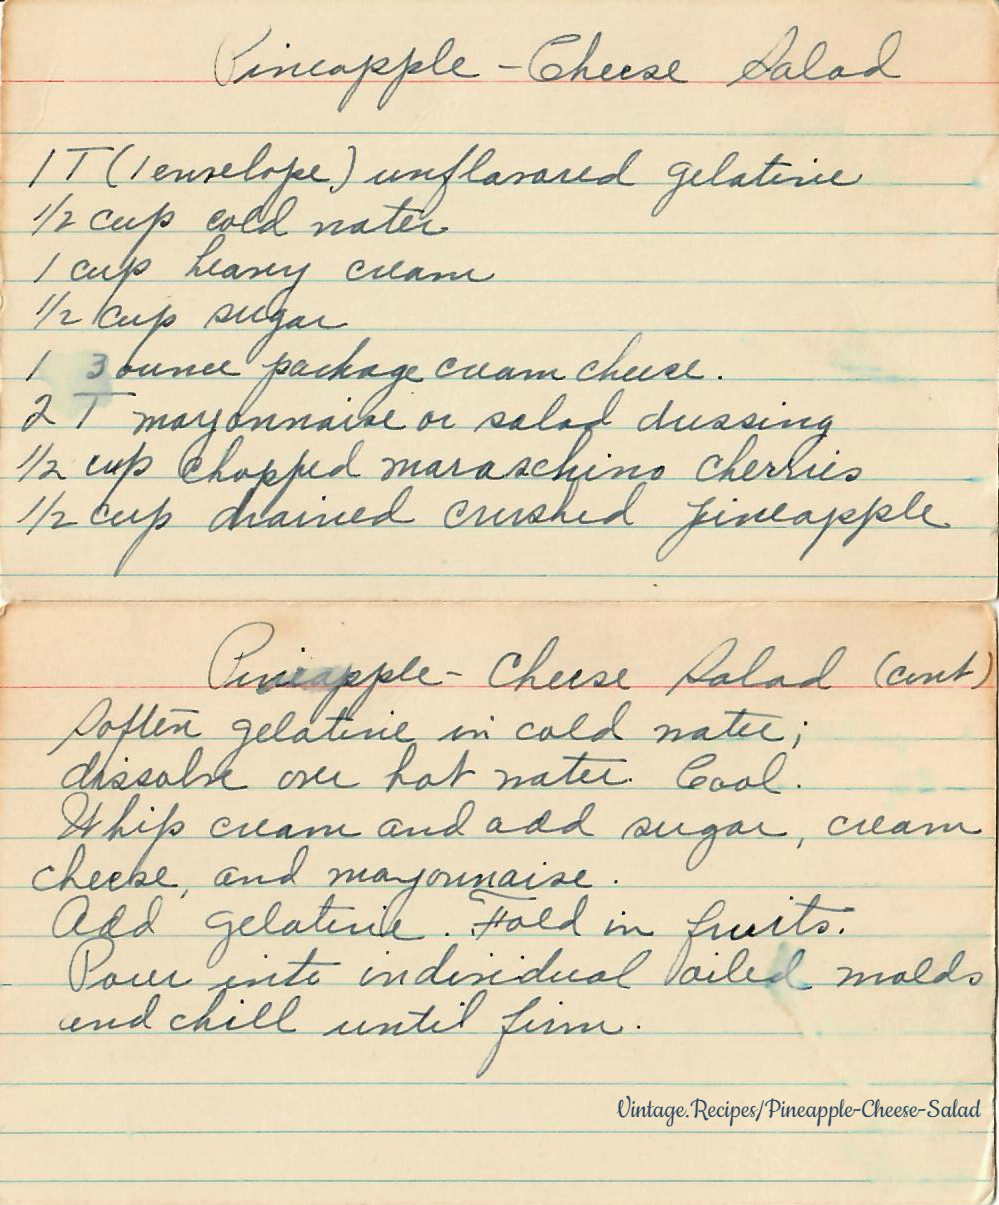 Pineapple - Cheese Salad
1 T (1 envelope) unflavored gelatine
1/2 cup cold water
1 cup heavy cream
1/2 cup sugar
1 3 ounce package cream cheese.
2 T mayonnaise or salad dressing
1/2 cup chopped maraschino cherries
1/2 cup drained crushed pineapple
Pineapple - Cheese Salad (cont)
Soften gelatine in cold water;
dissolve over hot water. Cool.
Whip cream and add sugar, cream
cheese, and mayonnaise.
Add gelatine. Fold in fruits.
Pour into individual oiled molds
and chill until firm.
Vintage.Recipes/Pineapple-Cheese-Salad